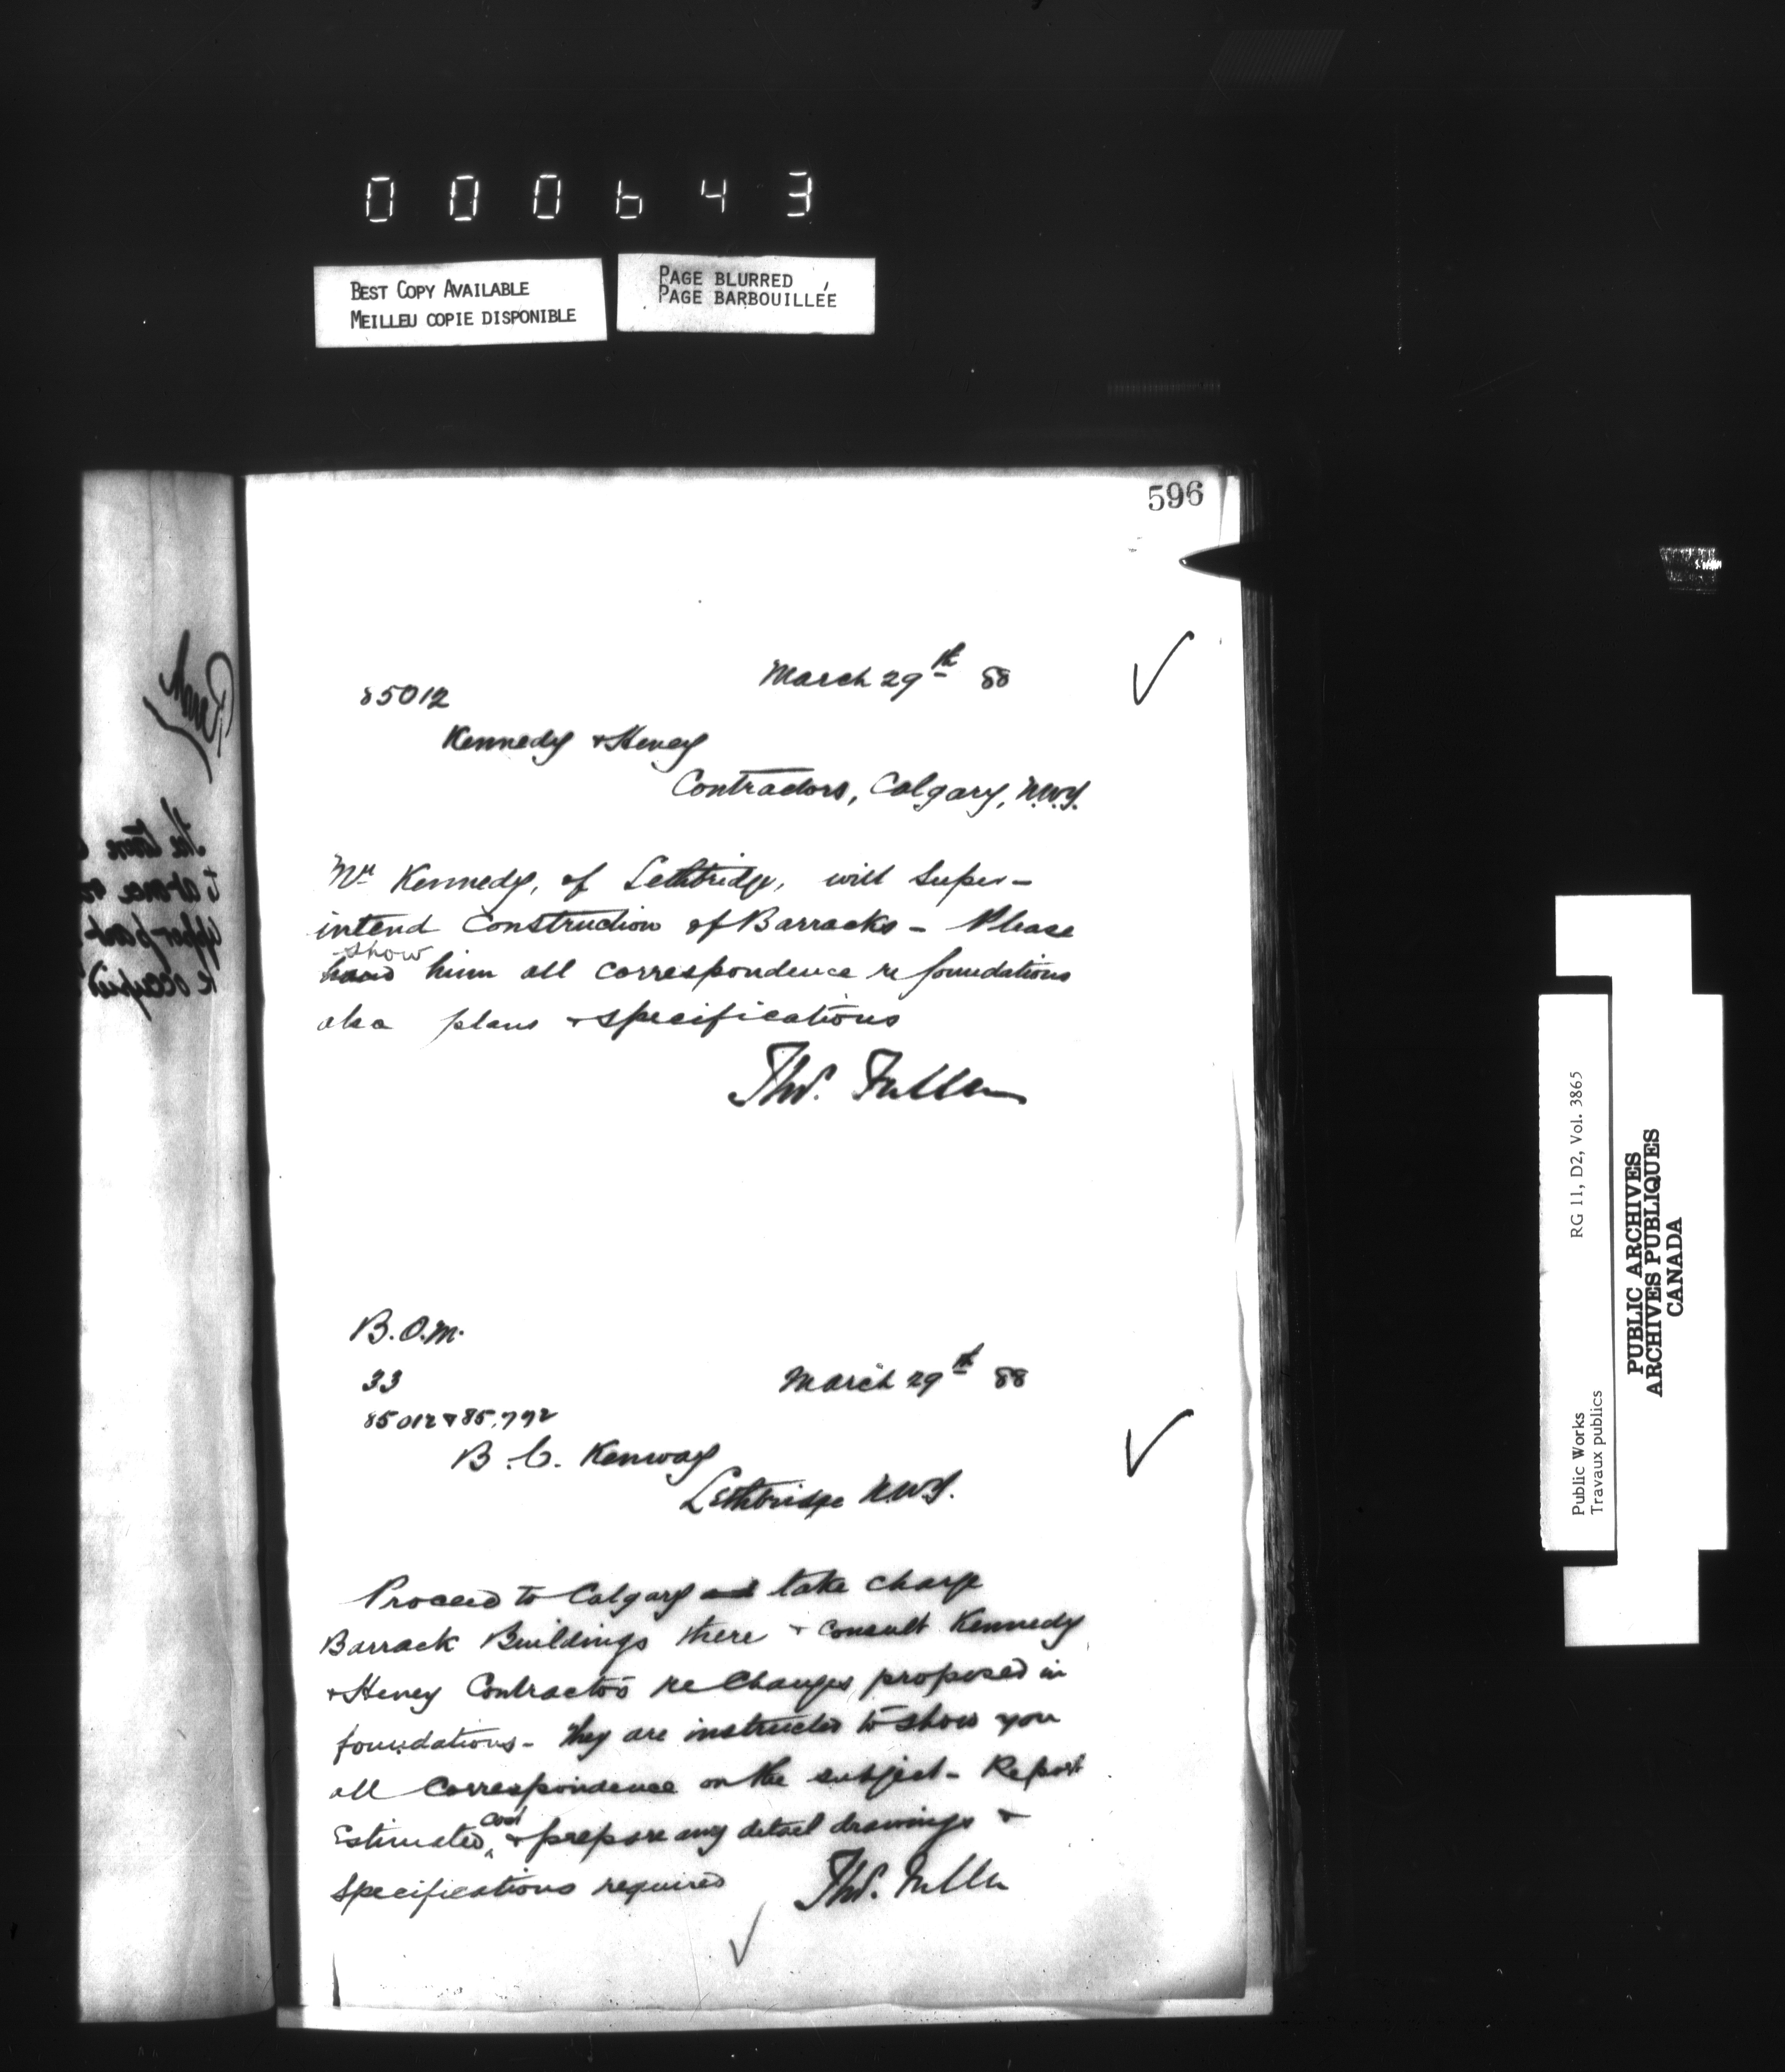 000643
BEST COPY AVAILABLE
MEILLEU COPIE DISPONIBLE
PAGE BLURRED
PAGE BARBOUILLÉE
596
March 29th 88
85012
Kennedy & Heney
Contractors, Calgary, N.W.T.
Mr Kennedy, of Lethbridge, will Super-
intend Construction of Barracks - Please
show
hand him all correspondence re foundations
also plans & specifications
Thos. Fuller
B.O.M.
33
March 29th 88
85012 & 85,792
B. C. Kenway
Lethbridge N.W.T.
Proceed to Calgary and take charge
Barrack Buildings there & consult Kennedy
& Heney Contractors re Changes proposed in
foundations - They are instructed to show you
all Correspondence on the subject - Report
cost
Estimated & prepare any detail drawings &
specifications required
Thos. Fuller
RG 11, D2, Vol. 3865
Public Works
Travaux publics
PUBLIC ARCHIVES
ARCHIVES PUBLIQUES
CANADA